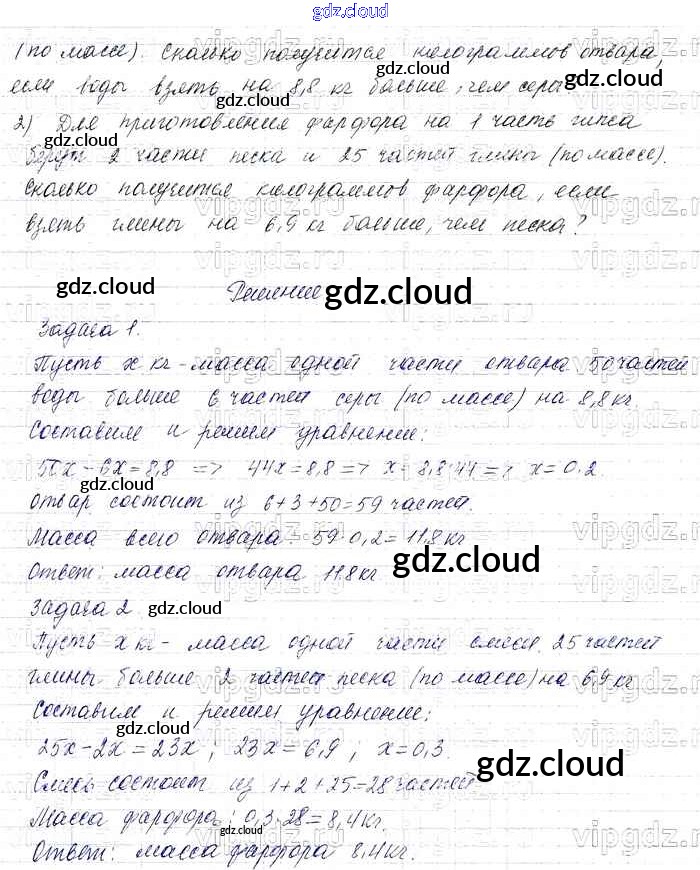 gdz.cloud
(по массе). Сколько получится килограммов отвара,
если воды взять на 8,8 кг больше, чем серы
2) Для приготовления фарфора на 1 часть гипса
берут 2 части песка и 25 частей глины (по массе).
Сколько получится килограммов фарфора, если
взять глины на 6,9 кг больше, чем песка?
Решение
Задача 1.
Пусть x кг - масса одной части отвара. 50 частей
воды больше 6 частей серы (по массе) на 8,8 кг.
Составим и решим уравнение:
50x - 6x = 8,8 => 44x = 8,8 => x = 8,8:44 => x = 0,2.
Отвар состоит из 6+3+50=59 частей.
Масса всего отвара: 59·0,2=11,8 кг
Ответ: масса отвара 11,8 кг.
Задача 2
Пусть x кг - масса одной части смеси. 25 частей
глины больше 2 частей песка (по массе) на 6,9 кг
Составим и решим уравнение:
25x - 2x = 23x; 23x = 6,9; x = 0,3.
Смесь состоит из 1+2+25=28 частей
Масса фарфора: 0,3·28=8,4 кг.
Ответ: масса фарфора 8,4 кг.